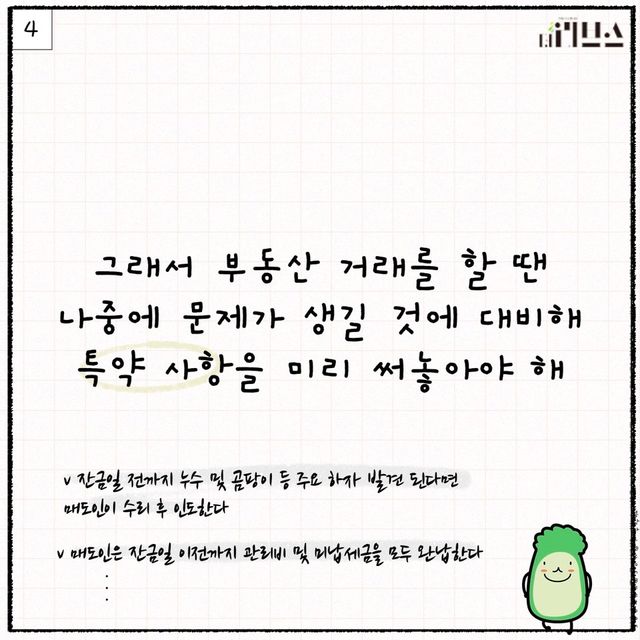 4
더리브스
그래서 부동산 거래를 할 땐
나중에 문제가 생길 것에 대비해
특약 사항을 미리 써놓아야 해
v 잔금일 전까지 누수 및 곰팡이 등 주요 하자 발견 된다면
매도인이 수리 후 인도한다
v 매도인은 잔금일 이전까지 관리비 및 미납세금을 모두 완납한다